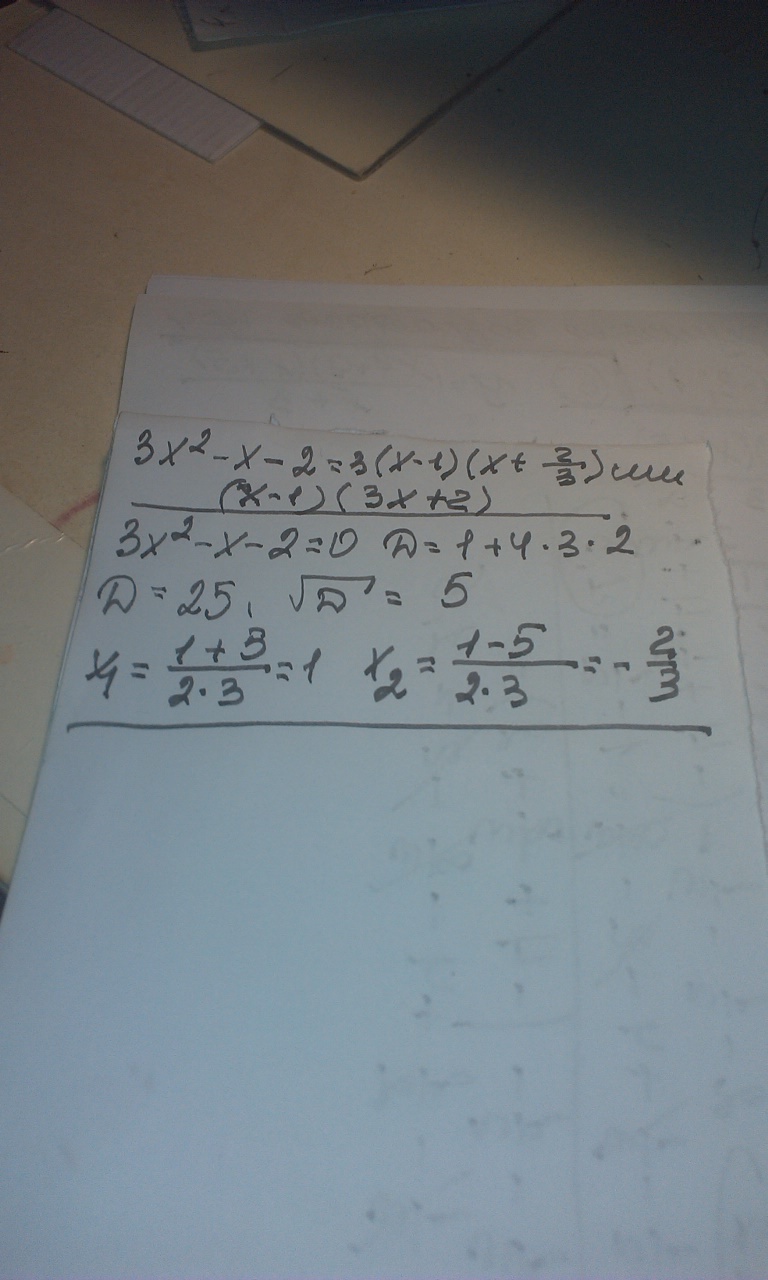 3x² - x - 2 = 3(x-1)(x + 2/3) или
(x-1)(3x+2)
3x² - x - 2 = 0 D = 1 + 4·3·2
D = 25, √D = 5
x₁ = (1+5)/(2·3) = 1 x₂ = (1-5)/(2·3) = - 2/3